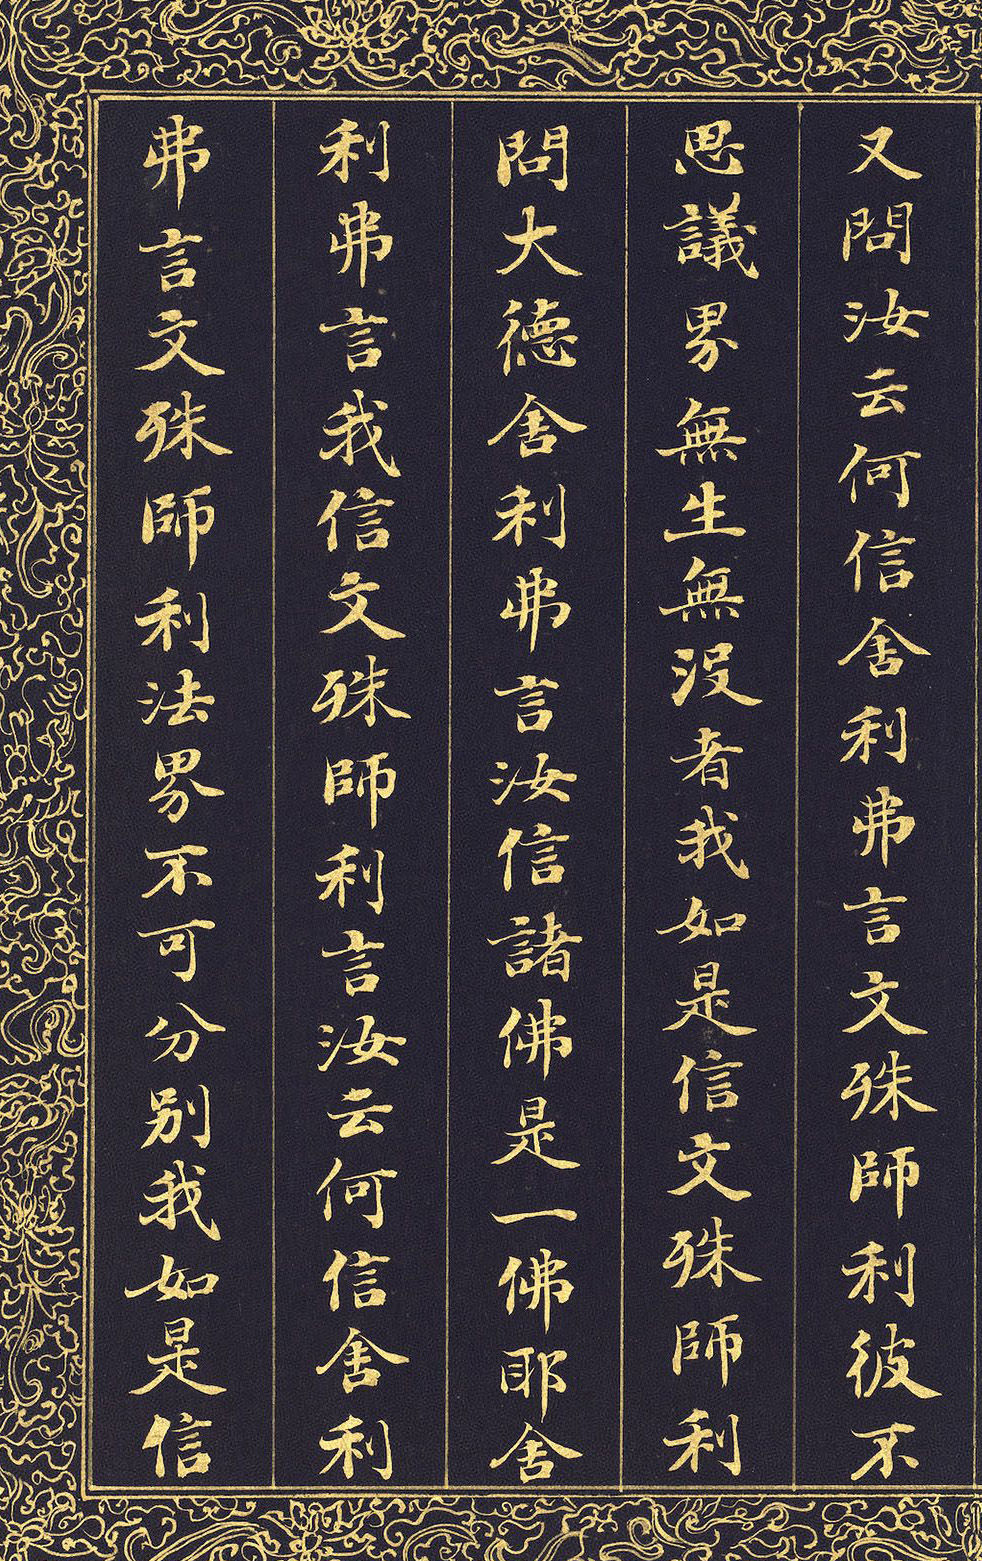 又問汝云何信舍利弗言文殊師利彼不
思議界無生無没者我如是信文殊師利
問大德舍利弗言汝信諸佛是一佛耶舍
利弗言我信文殊師利言汝云何信舍利
弗言文殊師利法界不可分别我如是信